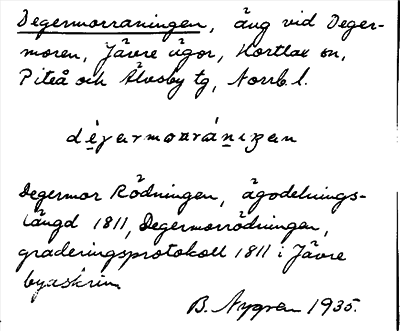 Degermorraningen, äng vid Deger-
moren, Jävre ägor, Hortlax sn,
Piteå och Älvsby tg, Norrb. l.
Degermor Rödningen, ägodelnings-
längd 1811, Degermorrödningen,
graderingsprotokoll 1811 i Jävre
byaskrin
B. Nygren 1935.